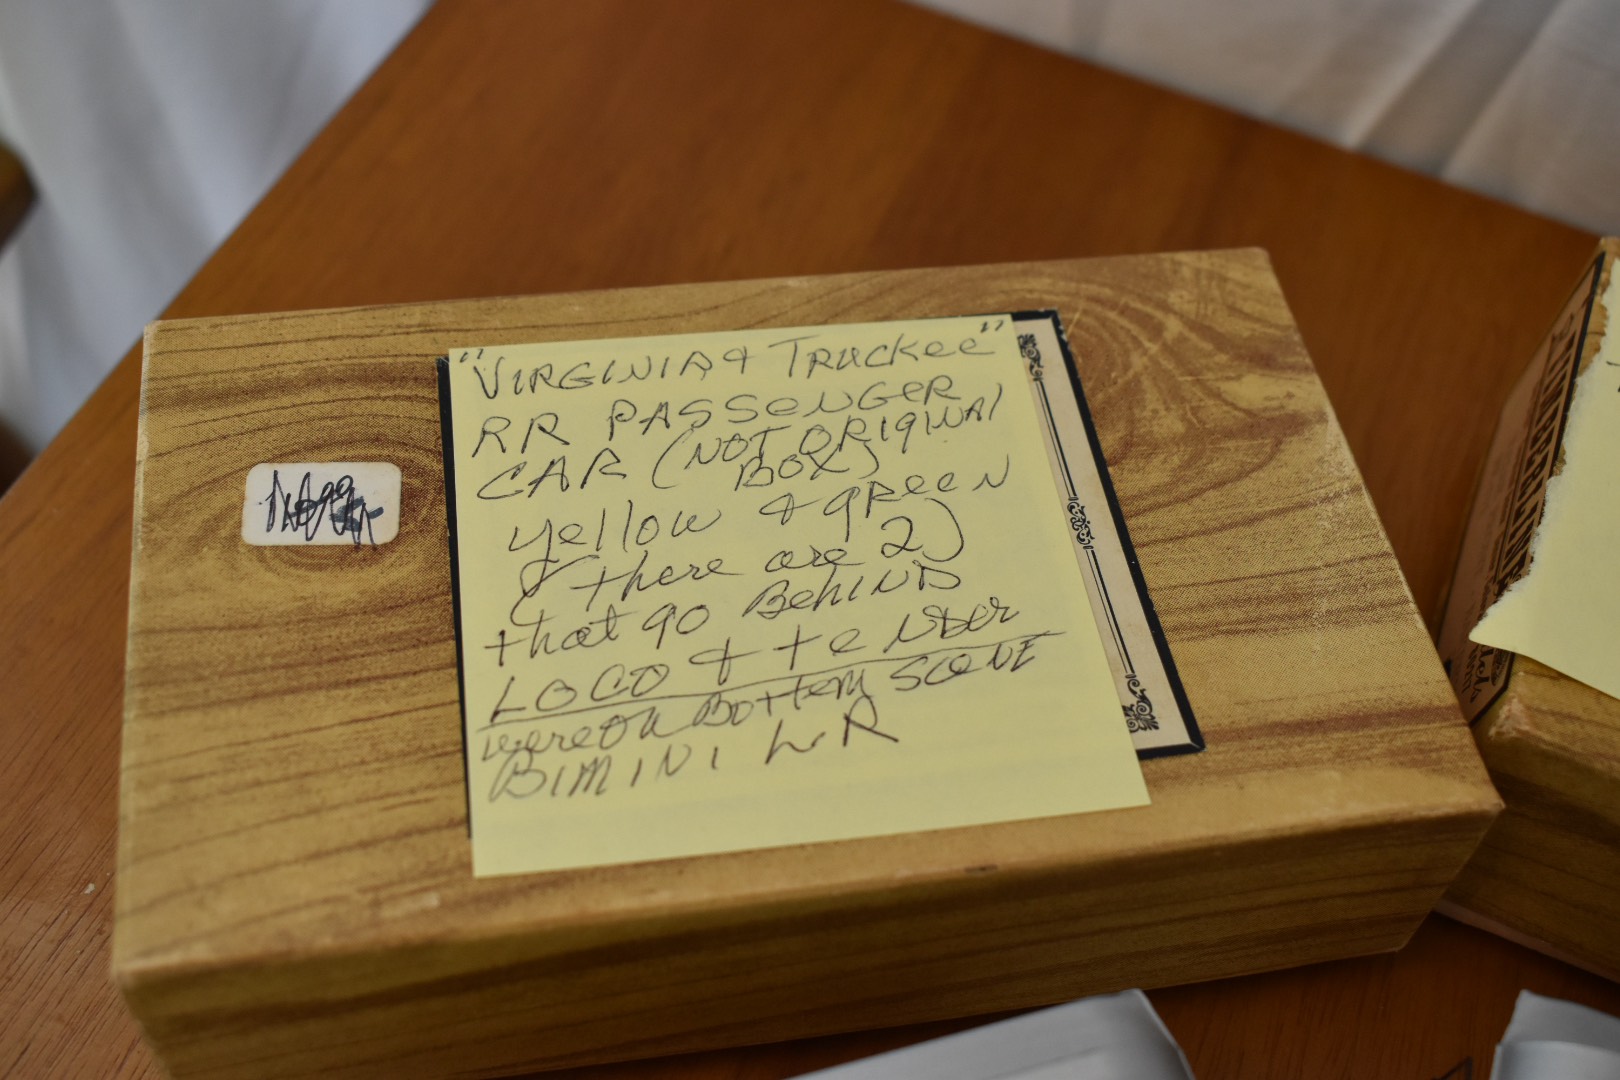 "VIRGINIA & TRUCKEE"
RR PASSENGER
CAR (NOT ORIGINAL
BOX)
yellow & gREEN
(there are 2)
that go BEHIND
LOCO & tender
were on BOTTOM SCENE
BIMINI LR
TIMBERLINE